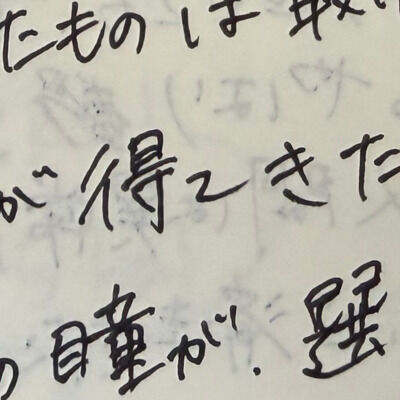 たものは取
が得てきた
の瞳が.